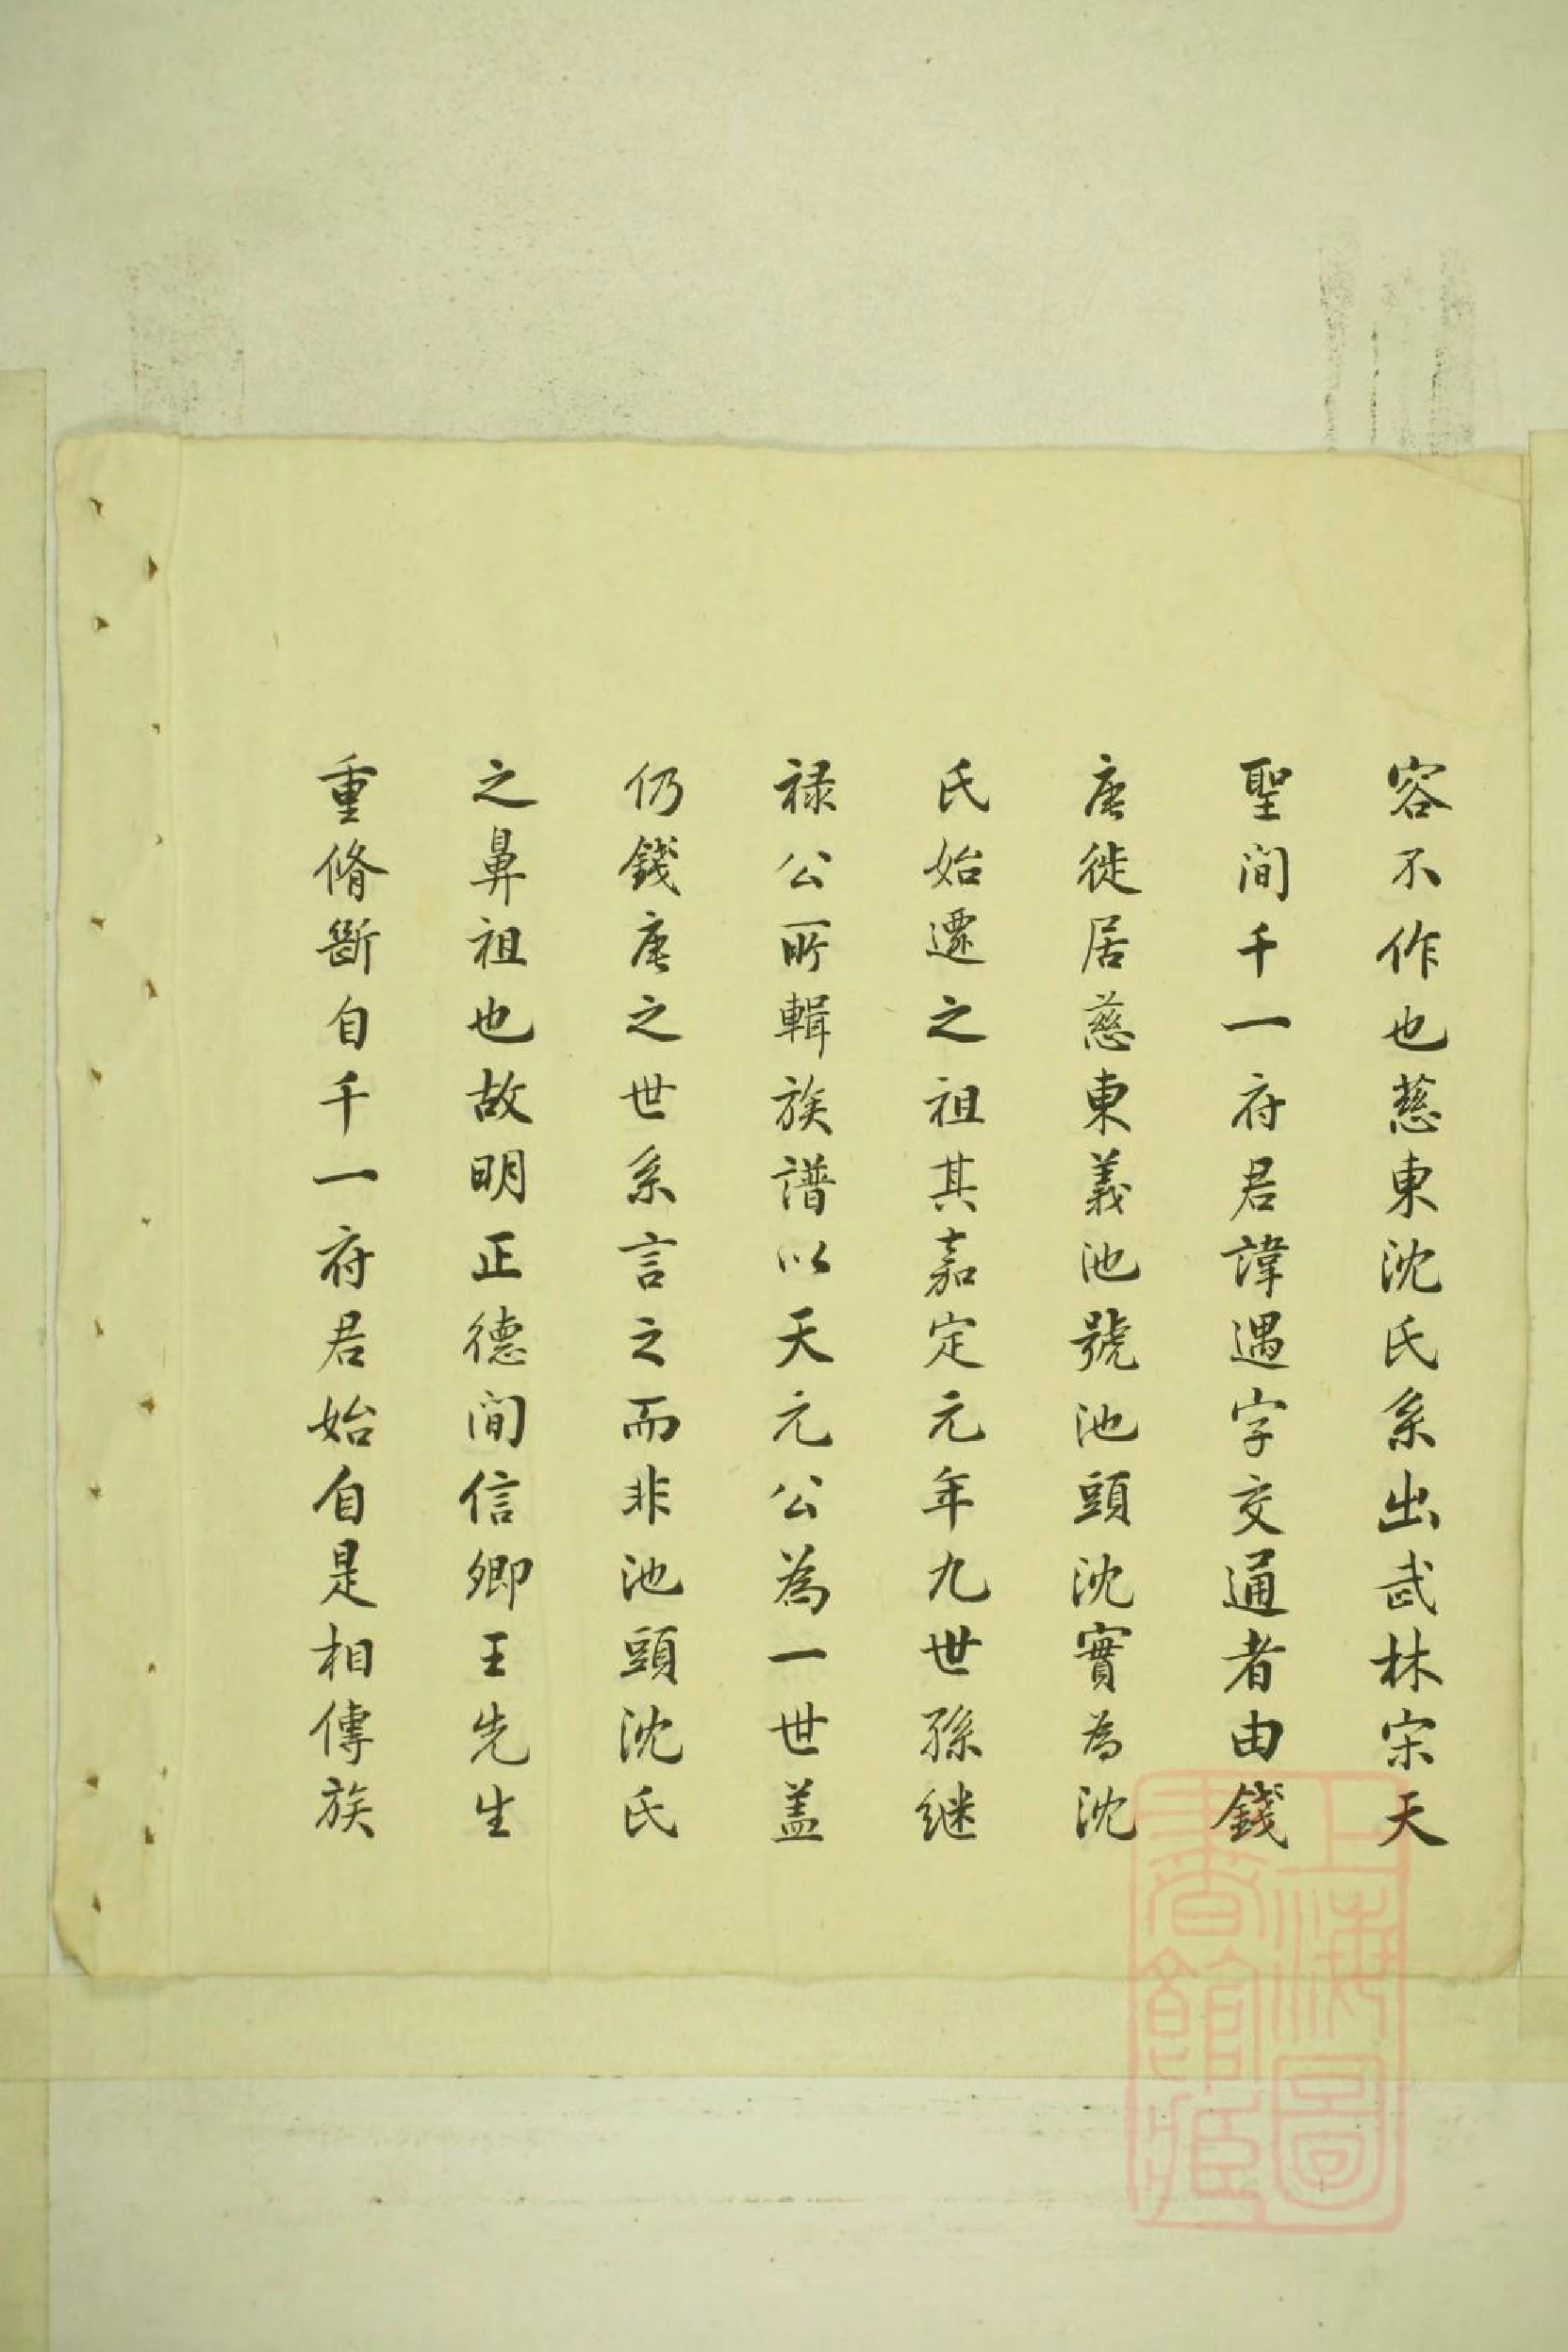 容不作也慈東沈氏系出武林宋天
聖間千一府君諱遇字交通者由錢
唐徙居慈東義池號池頭沈實為沈
氏始遷之祖其嘉定元年九世孫继
禄公所輯族譜以天元公為一世盖
仍錢唐之世系言之而非池頭沈氏
之鼻祖也故明正德間信卿王先生
重脩斷自千一府君始自是相傳族
上海圖
書館藏